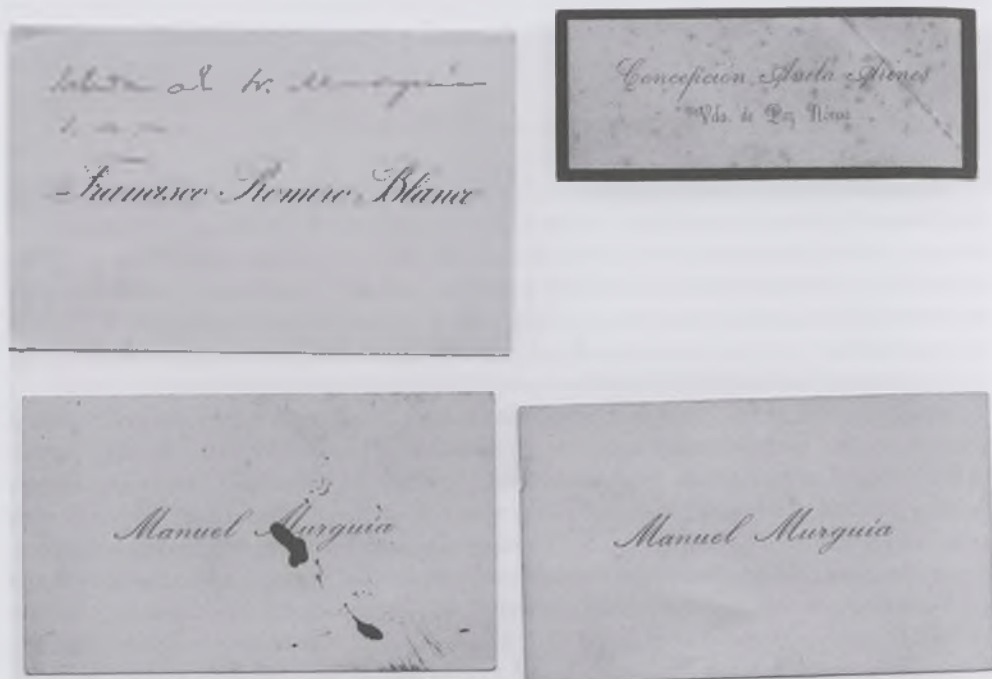 al Sr.
Francisco Romero Blanco
Concepción
Vda. de Paz Novoa
Manuel Murguía
Manuel Murguía